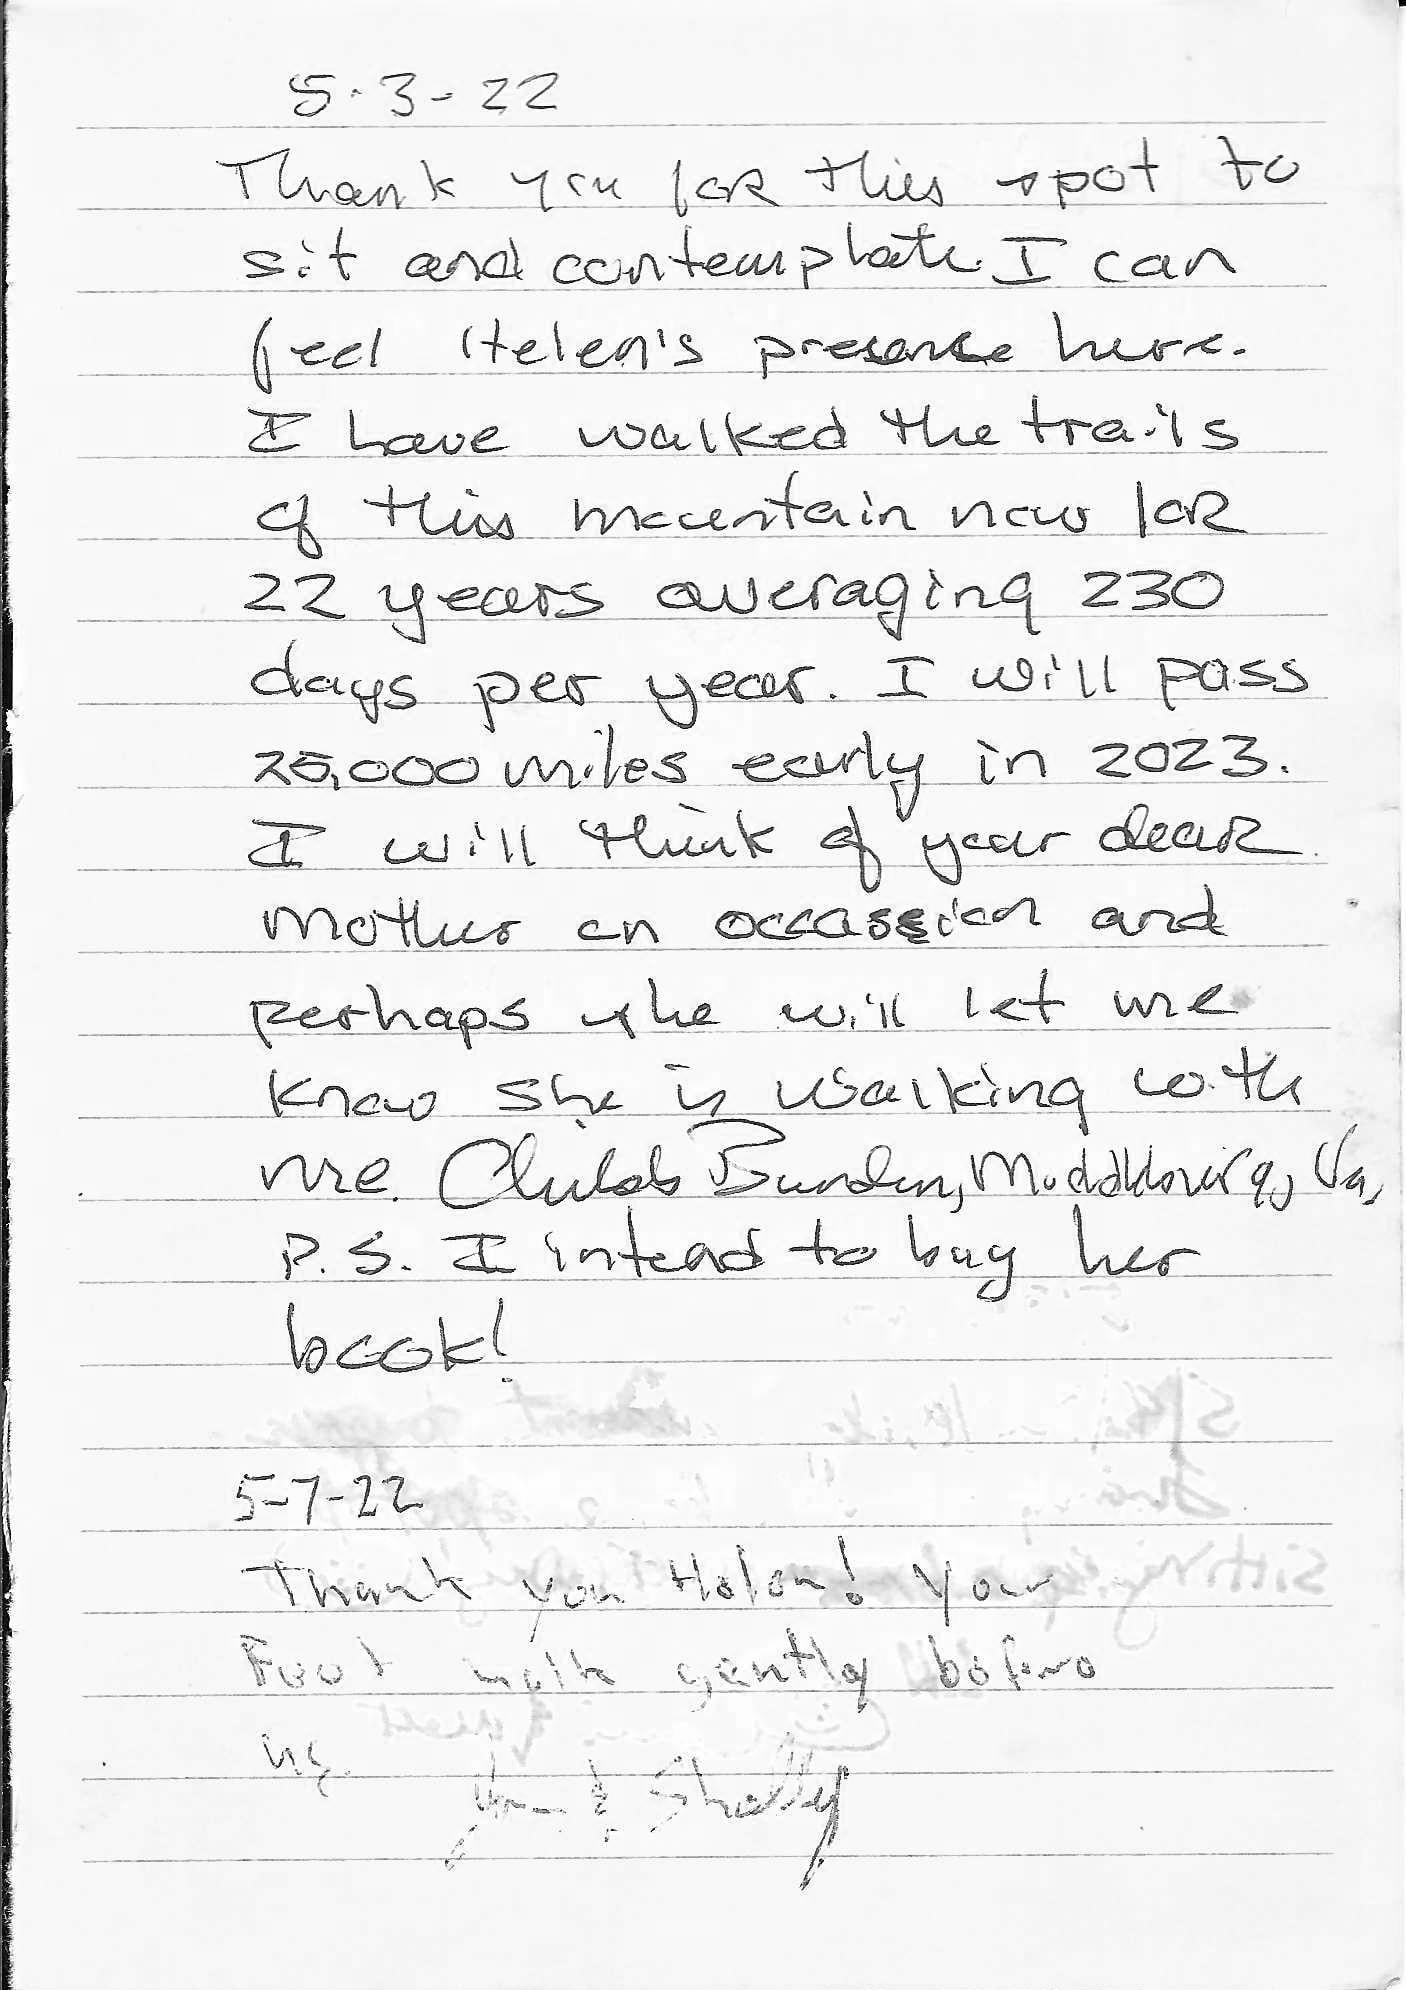 5-3-22
Thank you for this spot to
sit and contemplate. I can
feel Helen's presence here.
I have walked the trails
of this mountain now for
22 years averaging 230
days per year. I will pass
25,000 miles early in 2023.
I will think of your dear
mother on occassion and
perhaps she will let me
know she is walking with
me. Childs Burden, Middleburg, Va,
P.S. I intend to buy her
book!
5-7-22
Thank you Helen! Your
Foot walk gently before
us.
& Shelly